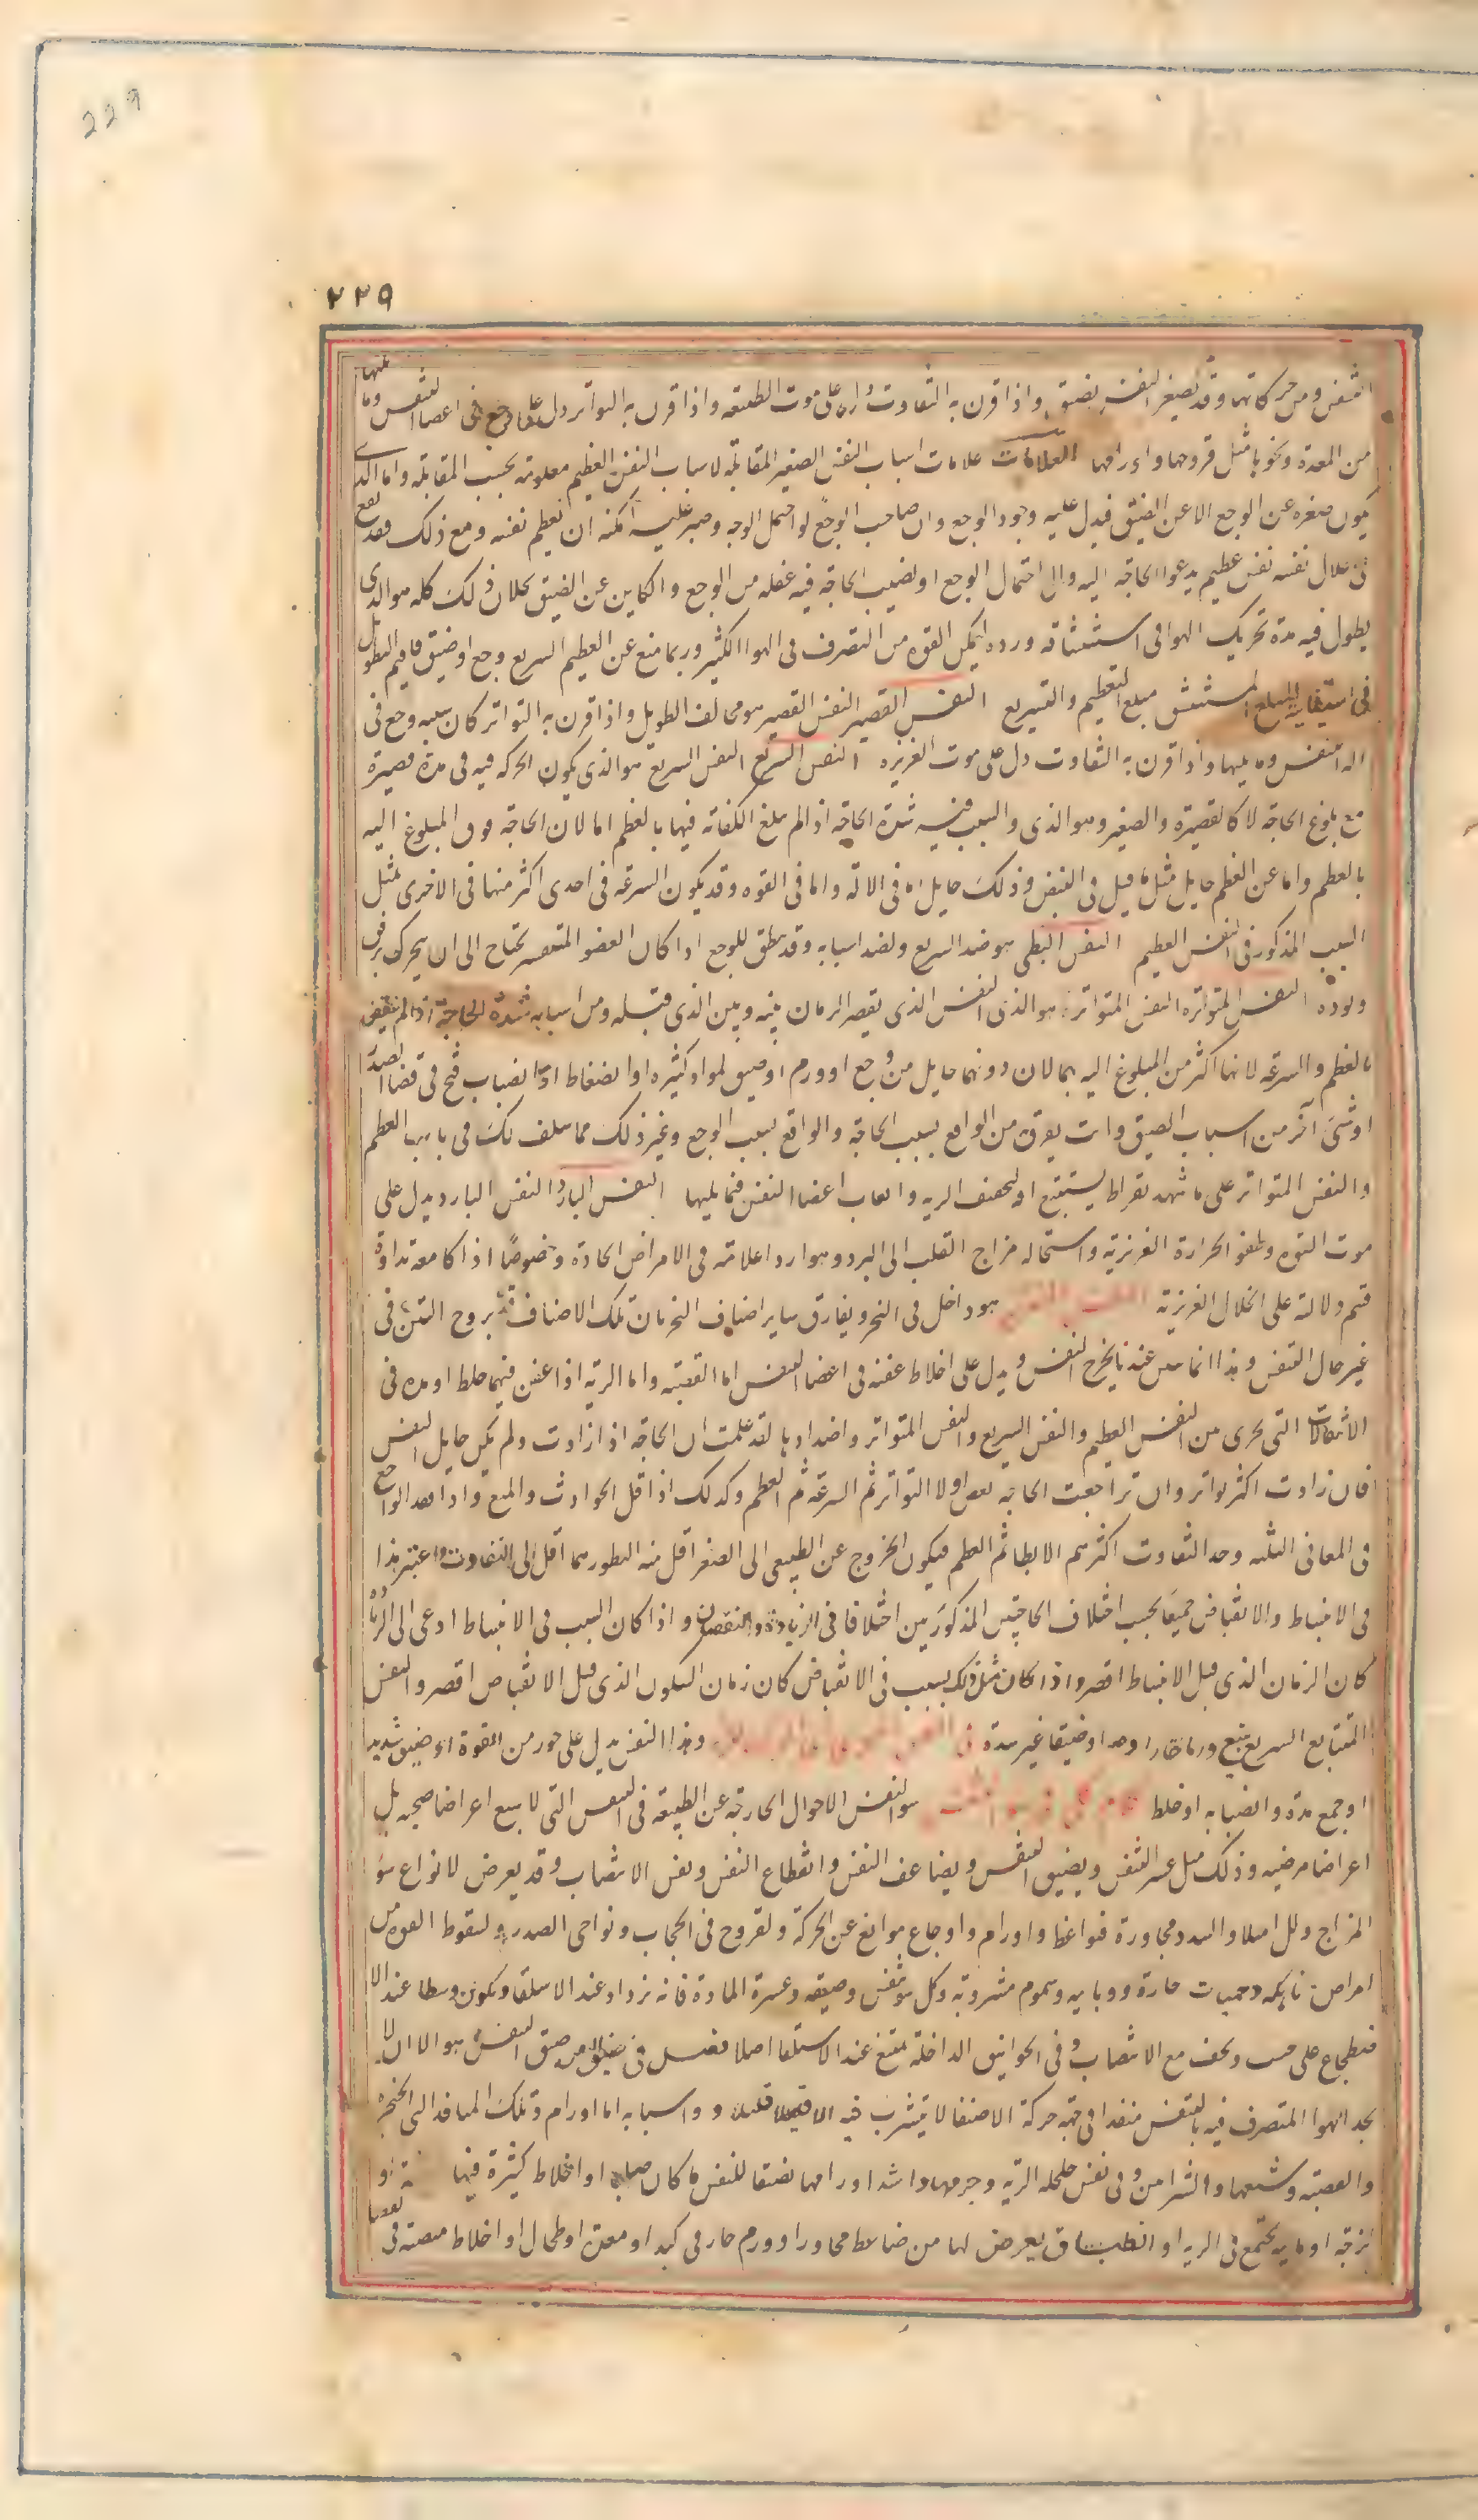 229
٢٢٩
التنفس ومن حركاتها وقد يصغر النفس بضيق واذا قرن به التفاوت دل على موت الطبيعه واذا قرن به التواتر دل على وجع فى اعضا التنفس وما يليها
من المعدة ونحوها مثل قروحها واورامها العلامات علامات اسباب النفس الصغير المقابلة لاسباب النفس العظيم معلومة بحسب المقابلة واما الذى
يكون صغره عن الوجع لا عن الضيق فيدل عليه وجود الوجع وان صاحب الوجع لو احتمل الوجع وصبر عليه امكنه ان يعظم نفسه ومع ذلك فقد يقع
فى خلال نفسه نفس عظيم يدعوا الحاجة اليه والى احتمال الوجع او يصيب الحاجة فيه غفله من الوجع والكاين عن الضيق بخلاف ذلك كله هو الذى
يطول فيه مدة تحريك الهوا فى استنشاقه ورده ليمكن القوه من التصرف فى الهوا الكثير وربما منع عن العظيم السريع وجع او ضيق فاقيم التطويل
فى استيفايه المبلغ المستنشق مبلغ التعظيم والتسريع النفس القصير النفس القصير هو مخالف الطويل واذا قرن به التواتر كان سببه وجع فى
اله التنفس وما يليها واذا قرن به التفاوت دل على موت الغريزه النفس السريع النفس السريع هو الذى يكون الحركه فيه فى مدة قصيرة
مع بلوغ الحاجة لا كالقصيرة والصغير وهو الذى والسبب فيه شدة الحاجه اذا لم يبلغ الكفاية فيها بالعظم اما لان الحاجة فوق المبلوغ اليه
بالعظم واما عن العظم حايل مثل ما قيل فى النبض وذلك حايل اما فى الالة واما فى القوه وقد يكون السرعه فى احدى اكثر منها فى الاخرى مثل
السبب المذكور فى النفس العظيم النفس البطى هو ضد السريع ولضد اسبابه وقد يبطى للوجع اذا كان العضو المتنفس يحتاج الى ان يتحرك برفق
وتوده النفس المتواتره النفس المتواتر هو الذى النفس الذى يقصر الزمان بينه وبين الذى قبله ومن اسبابه شدة الحاجة اذا لم ينقض
بالعظم والسرعه لانها اكثر من المبلوغ اليه بهما لان دونهما حايل من وجع او ورم او ضيق لمواد كثيره او انضغاط او انصباب قيح فى فضا الصدر
او شئ آخر من اسباب الضيق وانت يفرق من الواقع بسبب الحاجة والواقع بسبب الوجع وغير ذلك مما سلف لك فى باب العظم
والنفس المتواتر على ما شهد بقراط يستتبع او يجفف الريه واتعاب اعضا النفس فيما يليها النفس البارد النفس البارد يدل على
موت القوه وطفو الحرارة الغريزيه واستحاله مزاج القلب الى البرد وهو اردا علامة فى الامراض الحادة وخصوصًا اذا كا معه نداوة
فتم دلالة على انحلال الغريزيه هو داخل فى النحر ويفارق ساير اصناف النحر بان تلك الاصناف قد بروح النتن فى
غير حال التنفس وهذا انما عند ما يخرج النفس ويدل على اخلاط عفنه فى اعضا النفس اما القصبه واما الريه اذا عفن فيهما خلط او مده فى
الانتقالات التى يجرى من النفس العظيم والنفس السريع والنفس المتواتر واضدادها لقد علمت ان الحاجه اذا زادت ولم يكن حايل النفس
فان زادت اكثر تواتر وان تراجعت الحاجه نقص اولا التواتر ثم السرعه ثم العظم وكذلك اذا قل الحوادث والمنع واذا فقد الواقع
فى المعانى الثلثه وجد التفاوت اكثر ثم الابطا ثم العظم فيكون الخروج عن الطبيعى الى الصغر اقل منه البطور بما اقل الى التفاوت واعتبر هذا
فى الانبساط والانقباض جميعًا بحسب اختلاف الحاجتين المذكورتين اختلافا فى الزيادة والنقصان واذا كان السبب فى الانبساط ادعى الى الزيادة
كان الزمان الذى قبل الانبساط اقصر واذا كان مثل ذلك بسبب فى الانقباض كان زمان السكون الذى قبل الانقباض اقصر والنفس
المتتابع السريع يتبع ورما حارا وضيقا غير سدة وهذا النفس يدل على خور من القوة او ضيق شديد
او جمع مدة وانصبابه او خلط سوالنفس الاحوال الخارجه عن الطبيعه فى النفس التى لا يتبع اعراضا صحيه بل
اعراضا مرضيه وذلك مثل عسر النفس وبضيق النفس ويضاعف النفس وانقطاع النفس ونفس الانتصاب وقد يعرض لانواع سو
المزاج ولل امتلا والسدد ومجاورة ضواغط واورام واوجاع موانع عن الحركة ولقروح فى الحجاب ونواحى الصدر ولسقوط القوه من
امراض ناهكه وحميات حارة ووبايه وسموم مشروبة وكل سو تنفس وضيقه وعسرة المادة فانه يزداد عند الاستلقا ويكون وسطا عند الا
ضطجاع على جنب ويخف مع الانتصاب وفى الخوانيق الداخلة يمتنع عند الاستلقا اصلا فصل فى ضيق النفس هو الا ان لا
يجد الهوا المتصرف فيه بالتنفس منفذا فى جهة حركة الا ضيقا لا يتشرب فيه الا قليلا قليلا واسبابه اما اورام فى تلك المنافذ التى الحنجره
والقصبة وشعبها والشرايين وفى نفس خلخله الريه وجرمها واشد اورامها تضيقا للنفس ما كان صلبا او اخلاط كثيرة فيها
لزجه او مايه يجتمع فى الريه او انطباق يعرض لها من ضاغط مجاور او ورم حار فى كبد او معدة او طحال او اخلاط منصبة فى